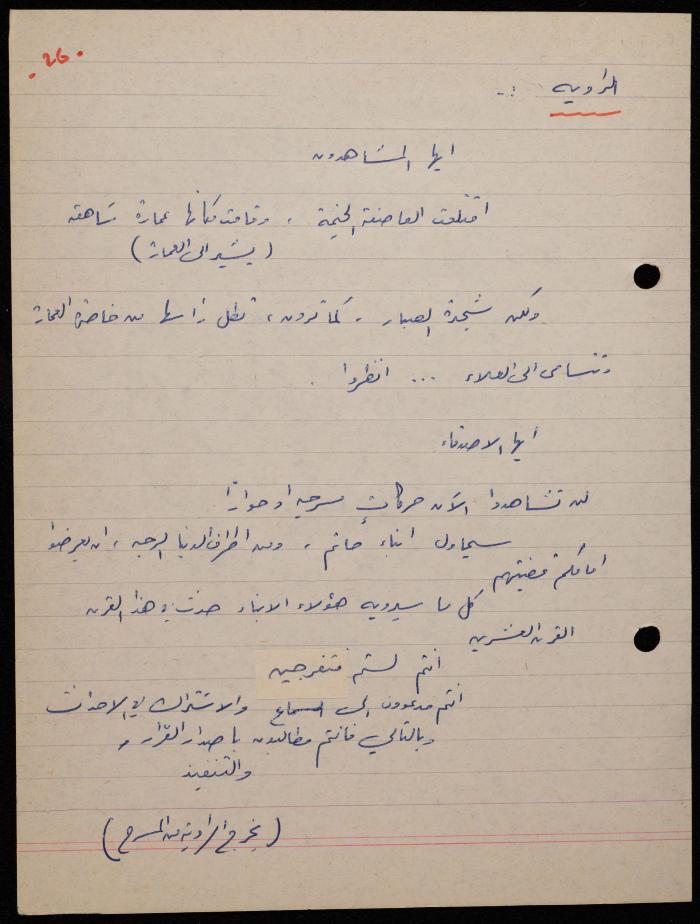 .26.
الراويه :..
ايها المشاهدون
اقتلعت العاصفة الخيمة ، وقامت مكانها عمارة شاهقه
(يشير الى العمارة)
ولكن شجرة الصبار ، كما ترون ، تطل رأسها من خاصرة العمارة
وتتسامى الى العلاء ... انظروا .
أيها الاصدقاء
لن تشاهدوا الآن حركاتٍ مسرحيه او حوارًا
سيحاول ابناء حاتم ، ومن اطراف الدنيا الرحبه ، ان يعرضوا
امامكم قضيتهم
كل ما سيرويه هؤلاء الابناء حدث في هذا القرن
القرن العشرين
انتم لستم متفرجين
انتم مدعوون الى اسماع والاشتراك في الاحداث
وبالتالي فانتم مطالبون باصدار القرار ،
والتنفيذ
(يخرج الراوية من المسرح)